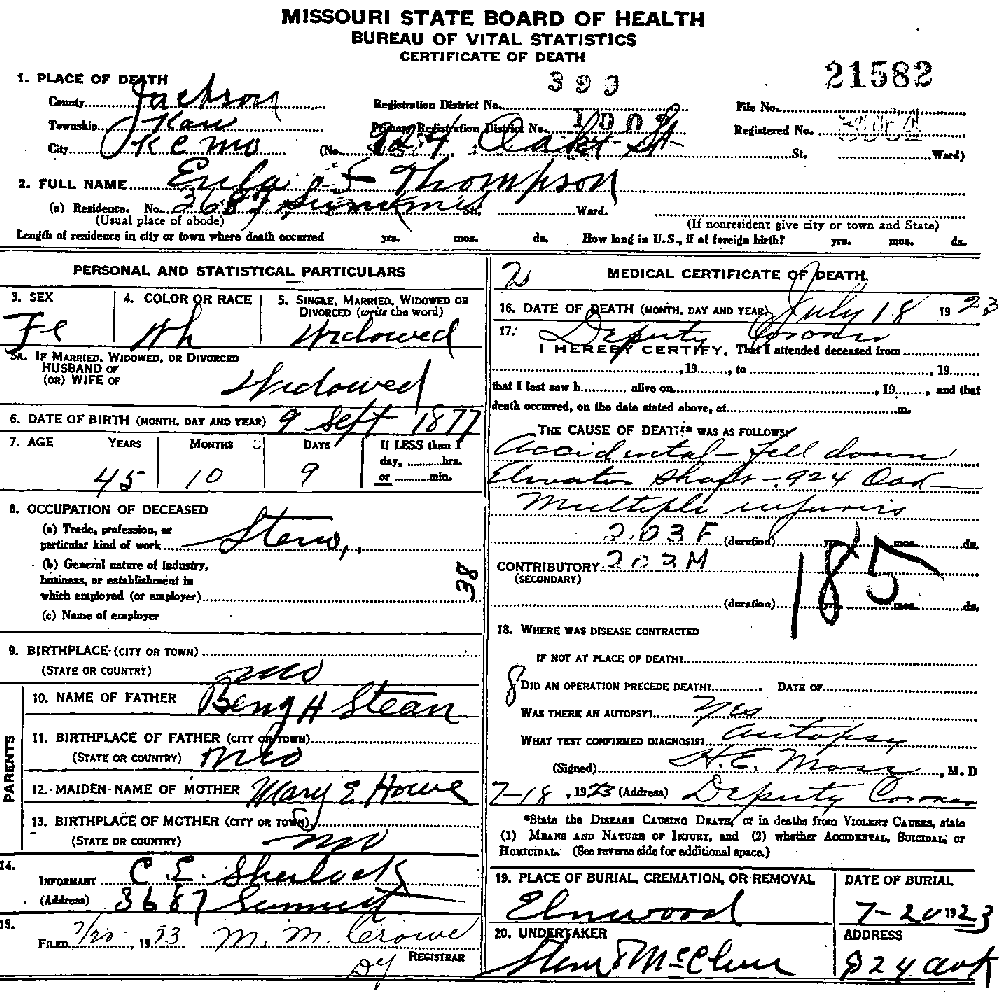 MISSOURI STATE BOARD OF HEALTH
BUREAU OF VITAL STATISTICS
CERTIFICATE OF DEATH
21582
1. PLACE OF DEATH
County Jackson Registration District No. 399 File No.
Township Kaw Primary Registration District No. 1002 Registered No.
City K C Mo (No. 924 Oak St St. Ward)
2. FULL NAME Eula S Thompson
(a) Residence. No. 3687 St. Ward.
(Usual place of abode) (If nonresident give city or town and State)
Length of residence in city or town where death occurred yrs. mos. ds. How long in U.S., if of foreign birth? yrs. mos. ds.
PERSONAL AND STATISTICAL PARTICULARS
3. SEX 4. COLOR OR RACE 5. SINGLE, MARRIED, WIDOWED OR DIVORCED (write the word)
Fe Wh Widowed
5A. IF MARRIED, WIDOWED, OR DIVORCED
HUSBAND OF
(OR) WIFE OF Widowed
6. DATE OF BIRTH (MONTH, DAY AND YEAR) 9 Sept 1877
7. AGE YEARS MONTHS DAYS If LESS than 1 day, hrs. or min.
45 10 9
8. OCCUPATION OF DECEASED
(a) Trade, profession, or particular kind of work Steno,
(b) General nature of industry, business, or establishment in which employed (or employer)
(c) Name of employer
38
9. BIRTHPLACE (CITY OR TOWN)
(STATE OR COUNTRY) Mo
PARENTS
10. NAME OF FATHER Benj H Stean
11. BIRTHPLACE OF FATHER (CITY OR TOWN)
(STATE OR COUNTRY) Mo
12. MAIDEN NAME OF MOTHER Mary E Howe
13. BIRTHPLACE OF MOTHER (CITY OR TOWN)
(STATE OR COUNTRY) Mo
14.
INFORMANT C. E. Sherlock
(Address) 3687 Summit
15.
FILED 7/20, 1923 M. M. Crowe
Dy REGISTRAR
2 MEDICAL CERTIFICATE OF DEATH
16. DATE OF DEATH (MONTH, DAY AND YEAR) July 18 1923
17. Deputy Coroner
I HEREBY CERTIFY, That I attended deceased from
, 19 , to , 19
that I last saw h alive on , 19 , and that
death occurred, on the date stated above, at m.
THE CAUSE OF DEATH* WAS AS FOLLOWS:
Accidental - fell down
Elevator Shaft - 924 Oak
Multiple injuries
203F (duration) yrs. mos. ds.
CONTRIBUTORY 202M
(SECONDARY)
185
(duration) yrs. mos. ds.
18. WHERE WAS DISEASE CONTRACTED
IF NOT AT PLACE OF DEATH?
8 DID AN OPERATION PRECEDE DEATH? DATE OF
WAS THERE AN AUTOPSY? Yes
WHAT TEST CONFIRMED DIAGNOSIS? Autopsy
(Signed) H. E. , M. D
7-18, 1923 (Address) Deputy Coroner
*State the DISEASE CAUSING DEATH, or in deaths from VIOLENT CAUSES, state
(1) MEANS AND NATURE OF INJURY, and (2) whether ACCIDENTAL, SUICIDAL, or
HOMICIDAL. (See reverse side for additional space.)
19. PLACE OF BURIAL, CREMATION, OR REMOVAL DATE OF BURIAL
Elmwood 7-20 1923
20. UNDERTAKER ADDRESS
& McClure 924 Oak